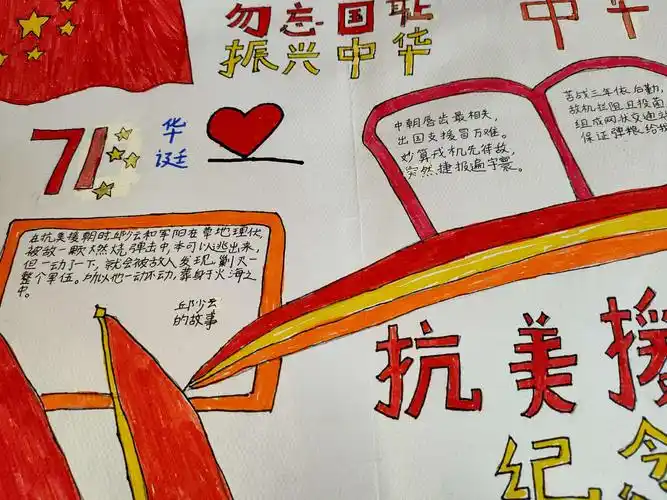 勿忘国耻
振兴中华
中华
71
华
诞
中朝唇齿最相关,
出国支援冒万难。
妙算戎机先待敌,
突然捷报遍宇寰。
苦战三年依后勤,
敌机拦阻且投菌
组成网状交通
保证弹粮给
在抗美援朝时邱少云和军阳在草地埋伏
被敌一颗燃烧弹击中,本可以逃出来,
但一动了一下,就会被敌人发现,剿灭一
整个军伍。所以他一动不动,葬身于火海之
中。
邱少云
的故事
抗美援
纪念